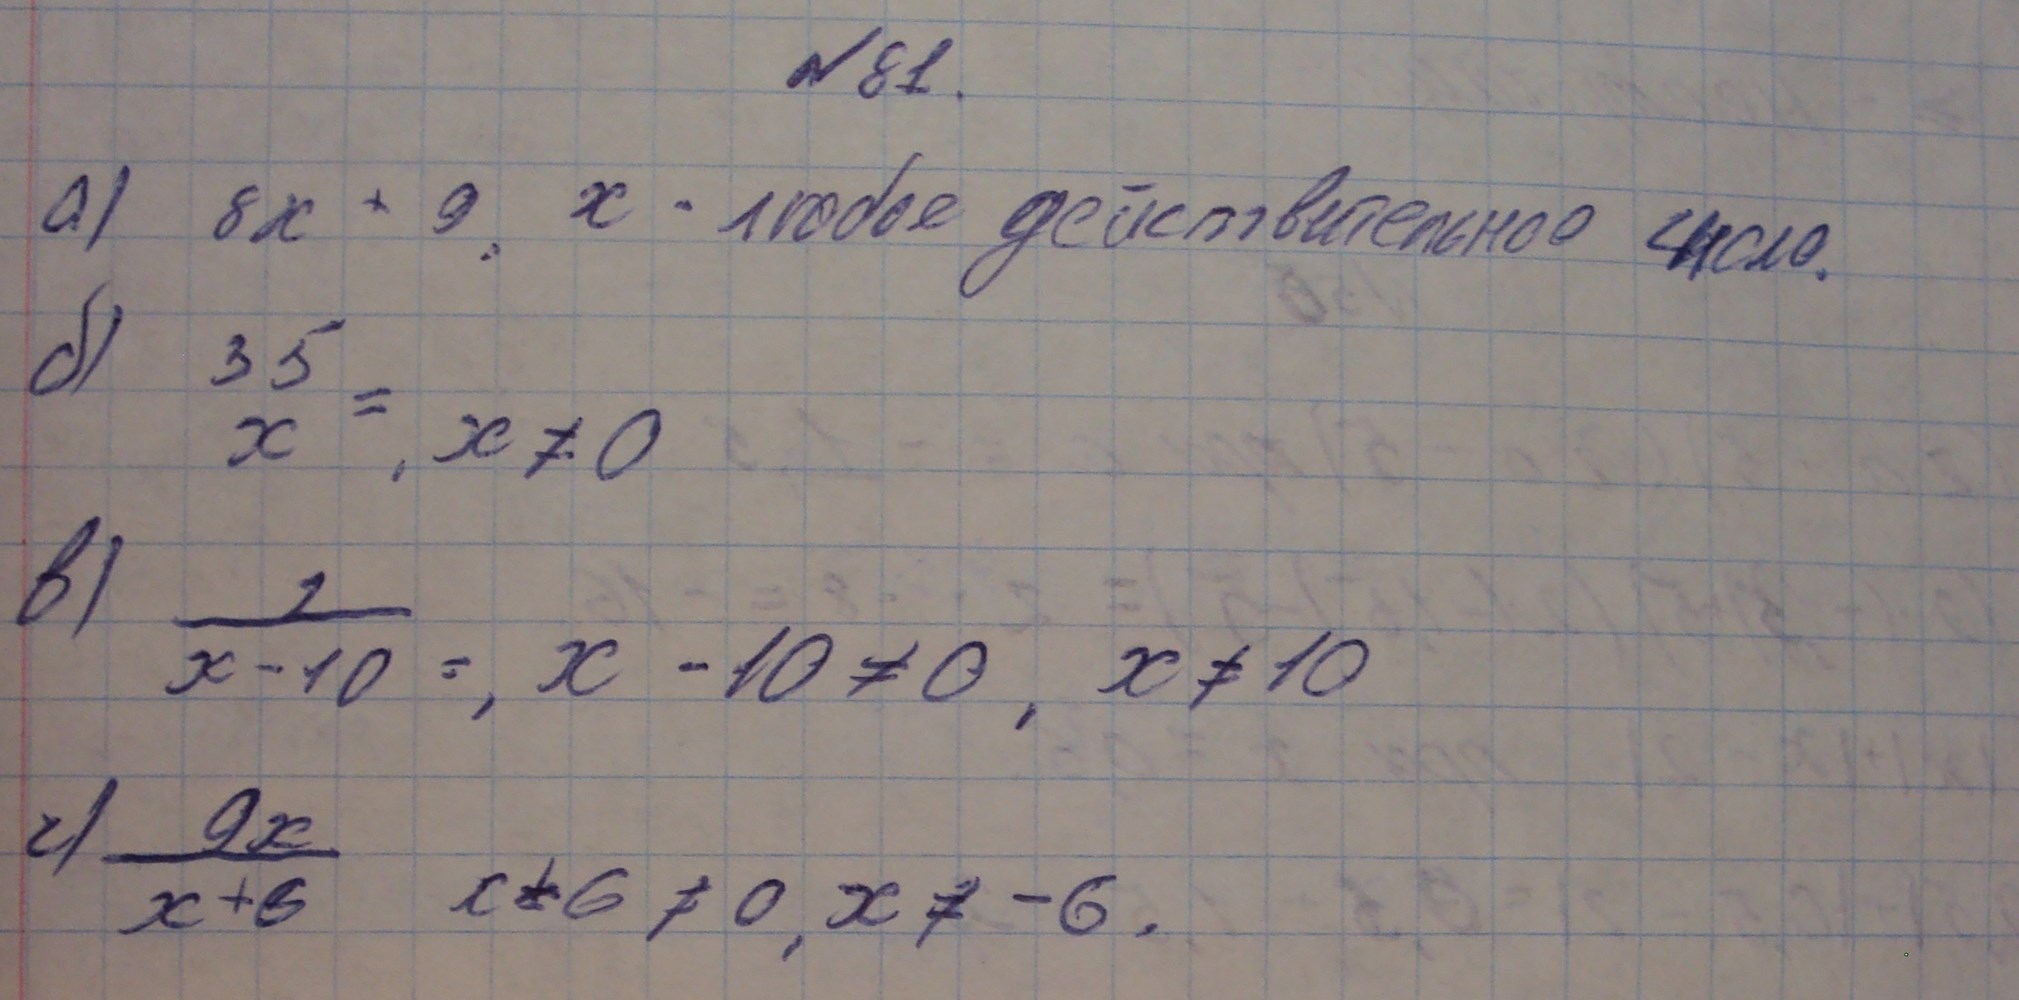 №81.
а) 8x + 9, x - любое действительное число.
б) 35
x =, x ≠ 0
в) 2
x - 10 =, x - 10 ≠ 0, x ≠ 10
г) 9x
x + 6 x + 6 ≠ 0, x ≠ - 6.